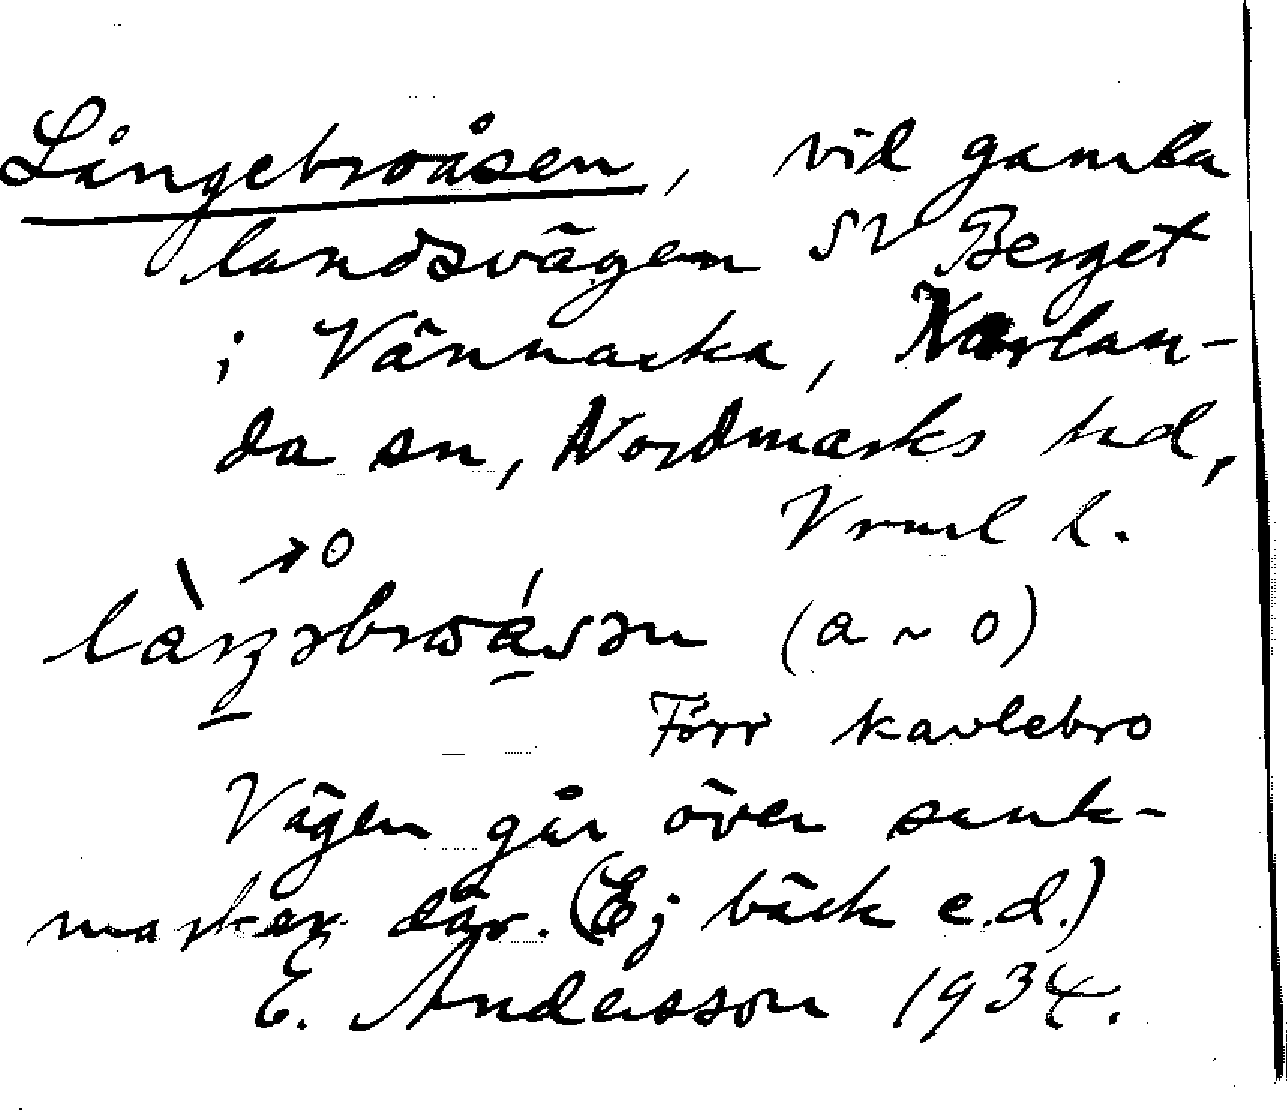 Långebroåsen, vid gamla
landsvägen SV Berget
i Vännacka, Karlan-
da sn, Nordmarks hd,
Vrml l.
→o
làŋəbroåsən (a ~ o)
Förr kavlebro
Vägen går över sank-
marker där. (Ej bäck e.d.)
E. Andersson 1934.